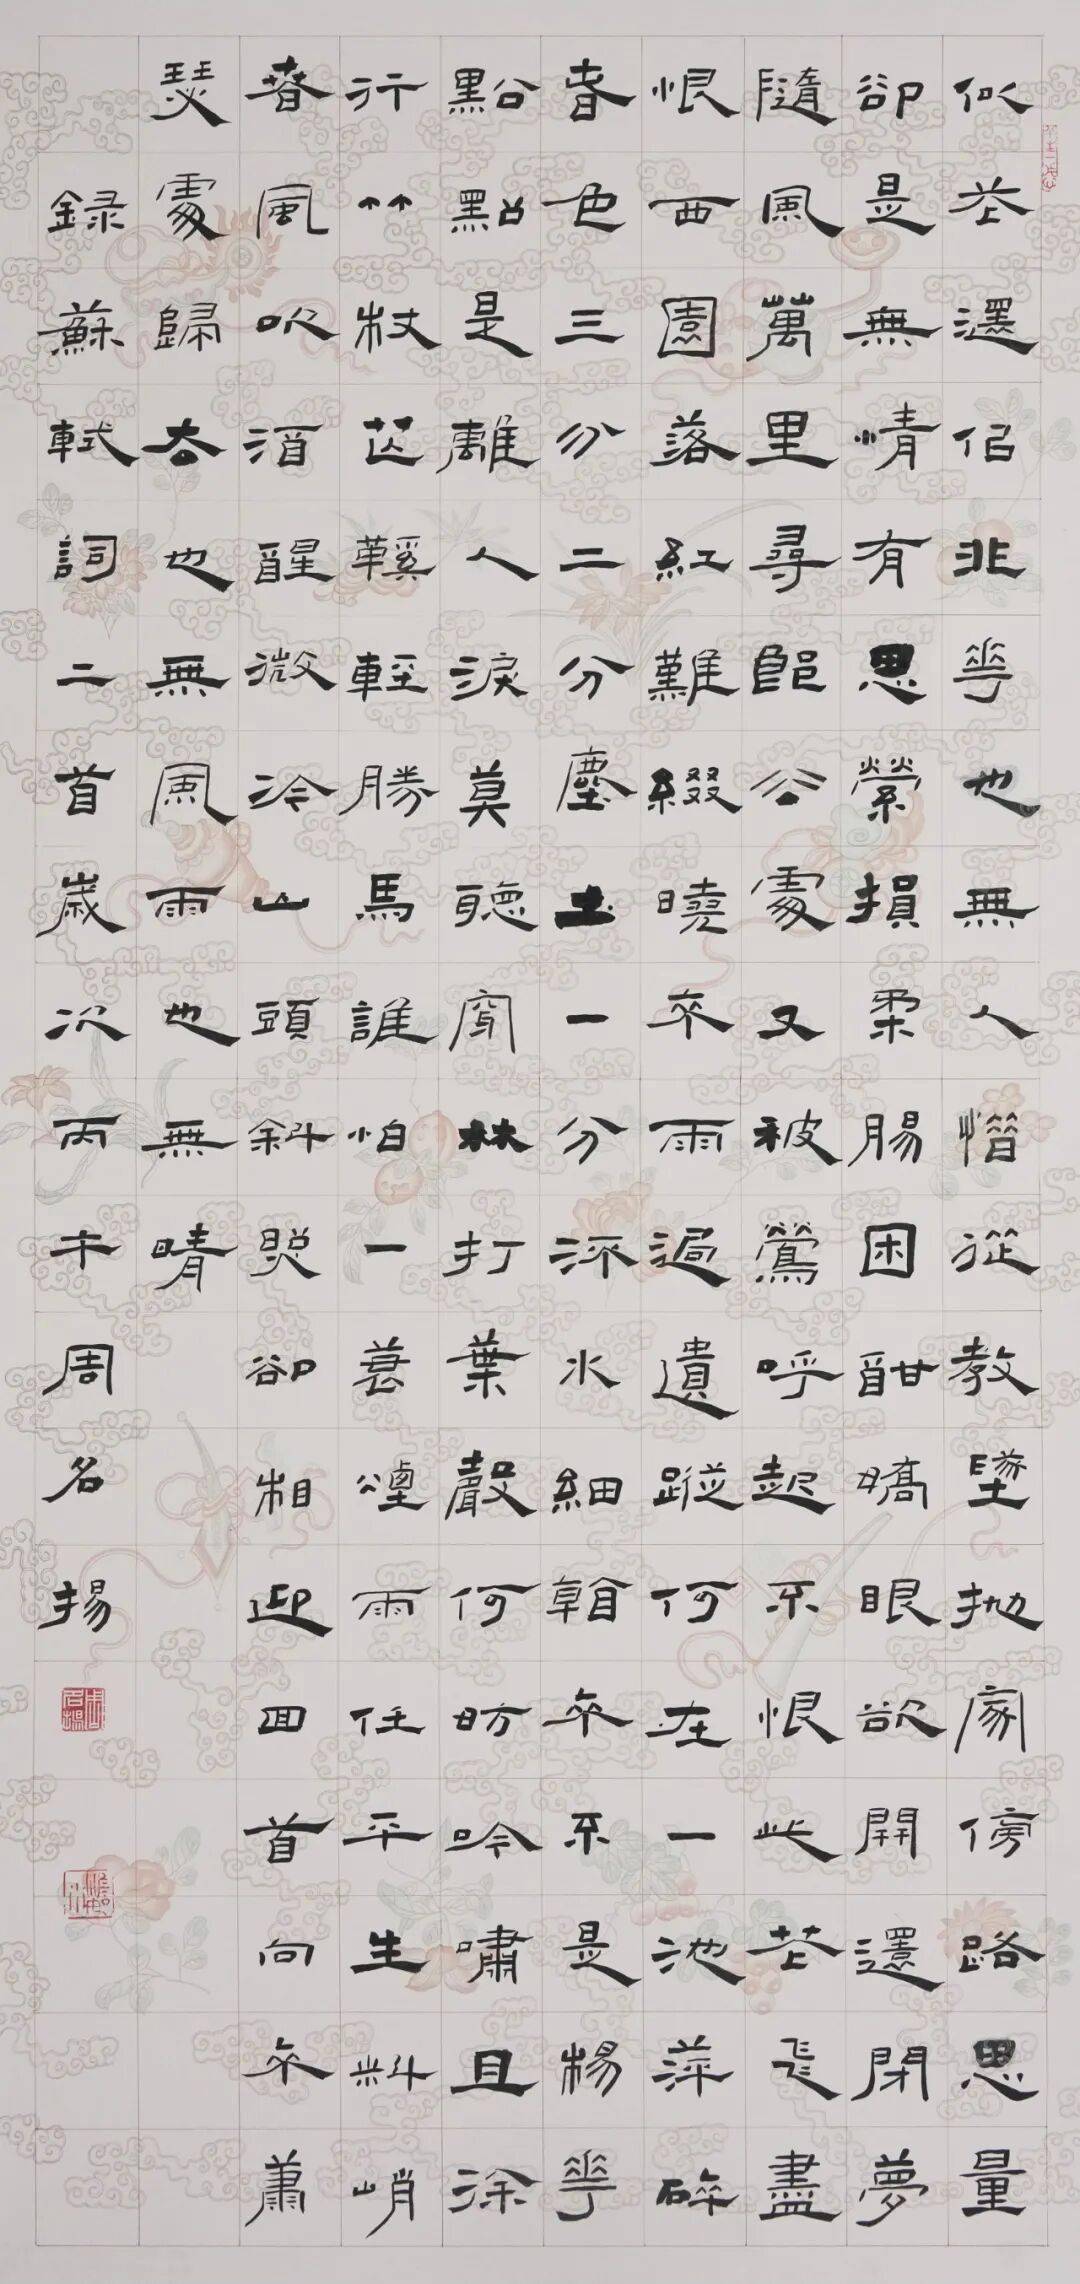 似花還似非花也無人惜從教墜拋家傍路思量
卻是無情有思縈損柔腸困酣嬌眼欲開還閉夢
隨風萬里尋郎去處又被鶯呼起不恨此花飛盡
恨西園落紅難綴曉來雨過遺蹤何在一池萍碎
春色三分二分塵土一分流水細看來不是楊花
點點是離人淚莫聽穿林打葉聲何妨吟嘯且徐
行竹杖芒鞵輕勝馬誰怕一蓑煙雨任平生料峭
春風吹酒醒微冷山頭斜照卻相迎回首向來蕭
瑟處歸去也無風雨也無晴
錄蘇軾詞二首歲次丙午周名揚